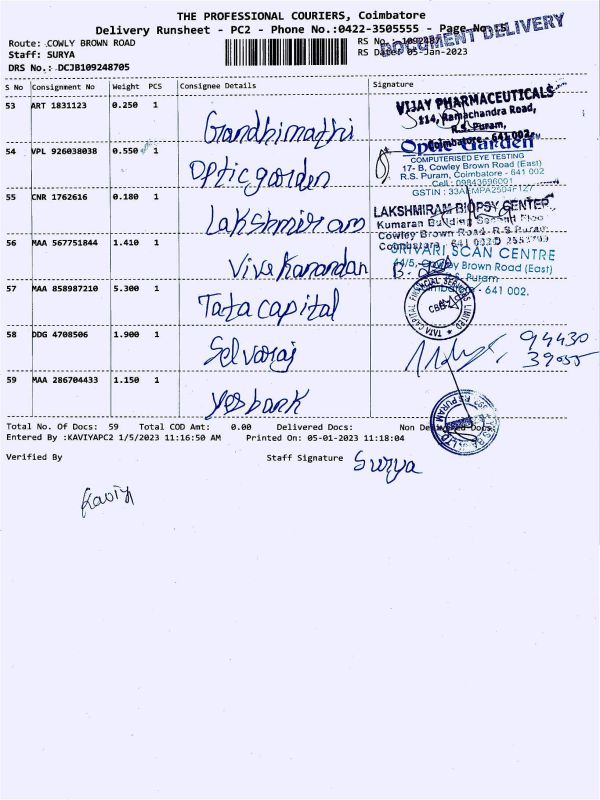 THE PROFESSIONAL COURIERS, Coimbatore
Delivery Runsheet - PC2 - Phone No.:0422-3505555 - Page No.:5
DOCUMENT DELIVERY
Route: COWLY BROWN ROAD
RS No.:
Staff: SURYA
RS Date: 05-Jan-2023
DRS No.: DCJB109248705
S No Consignment No Weight PCS Consignee Details Signature
53 ART 1831123 0.250 1 Gandhimathi
VIJAY PHARMACEUTICALS
114, Ramachandra Road,
R.S. Puram,
Coimbatore - 641 002.
54 VPL 926038038 0.550 1 Optic garden
Optic Garden
COMPUTERISED EYE TESTING
17- B, Cowley Brown Road (East)
R.S. Puram, Coimbatore - 641 002
Cell : 09843696091
GSTIN : 33AEMPA2504F1Z7
55 CNR 1762616 0.180 1 Lakshmiram
LAKSHMIRAM BIOPSY CENTER
Kumaran Building Second Floor
Cowley Brown Road, R.S Puram
Coimbatore - 641 002
56 MAA 567751844 1.410 1 Vivekanandan
SRIVARI SCAN CENTRE
Cowley Brown Road (East)
R.S. Puram
Coimbatore - 641 002.
57 MAA 858987210 5.300 1 Tata capital
TATA CAPITAL FINANCIAL SERVICES LIMITED
58 DDG 4708506 1.900 1 Selvaraj
94430
39055
59 MAA 286704433 1.150 1 yes bank
Total No. Of Docs: 59 Total COD Amt: 0.00 Delivered Docs: Non Delivered Docs:
Entered By :KAVIYAPC2 1/5/2023 11:16:50 AM Printed On: 05-01-2023 11:18:04
Verified By Staff Signature Surya
Kaviya